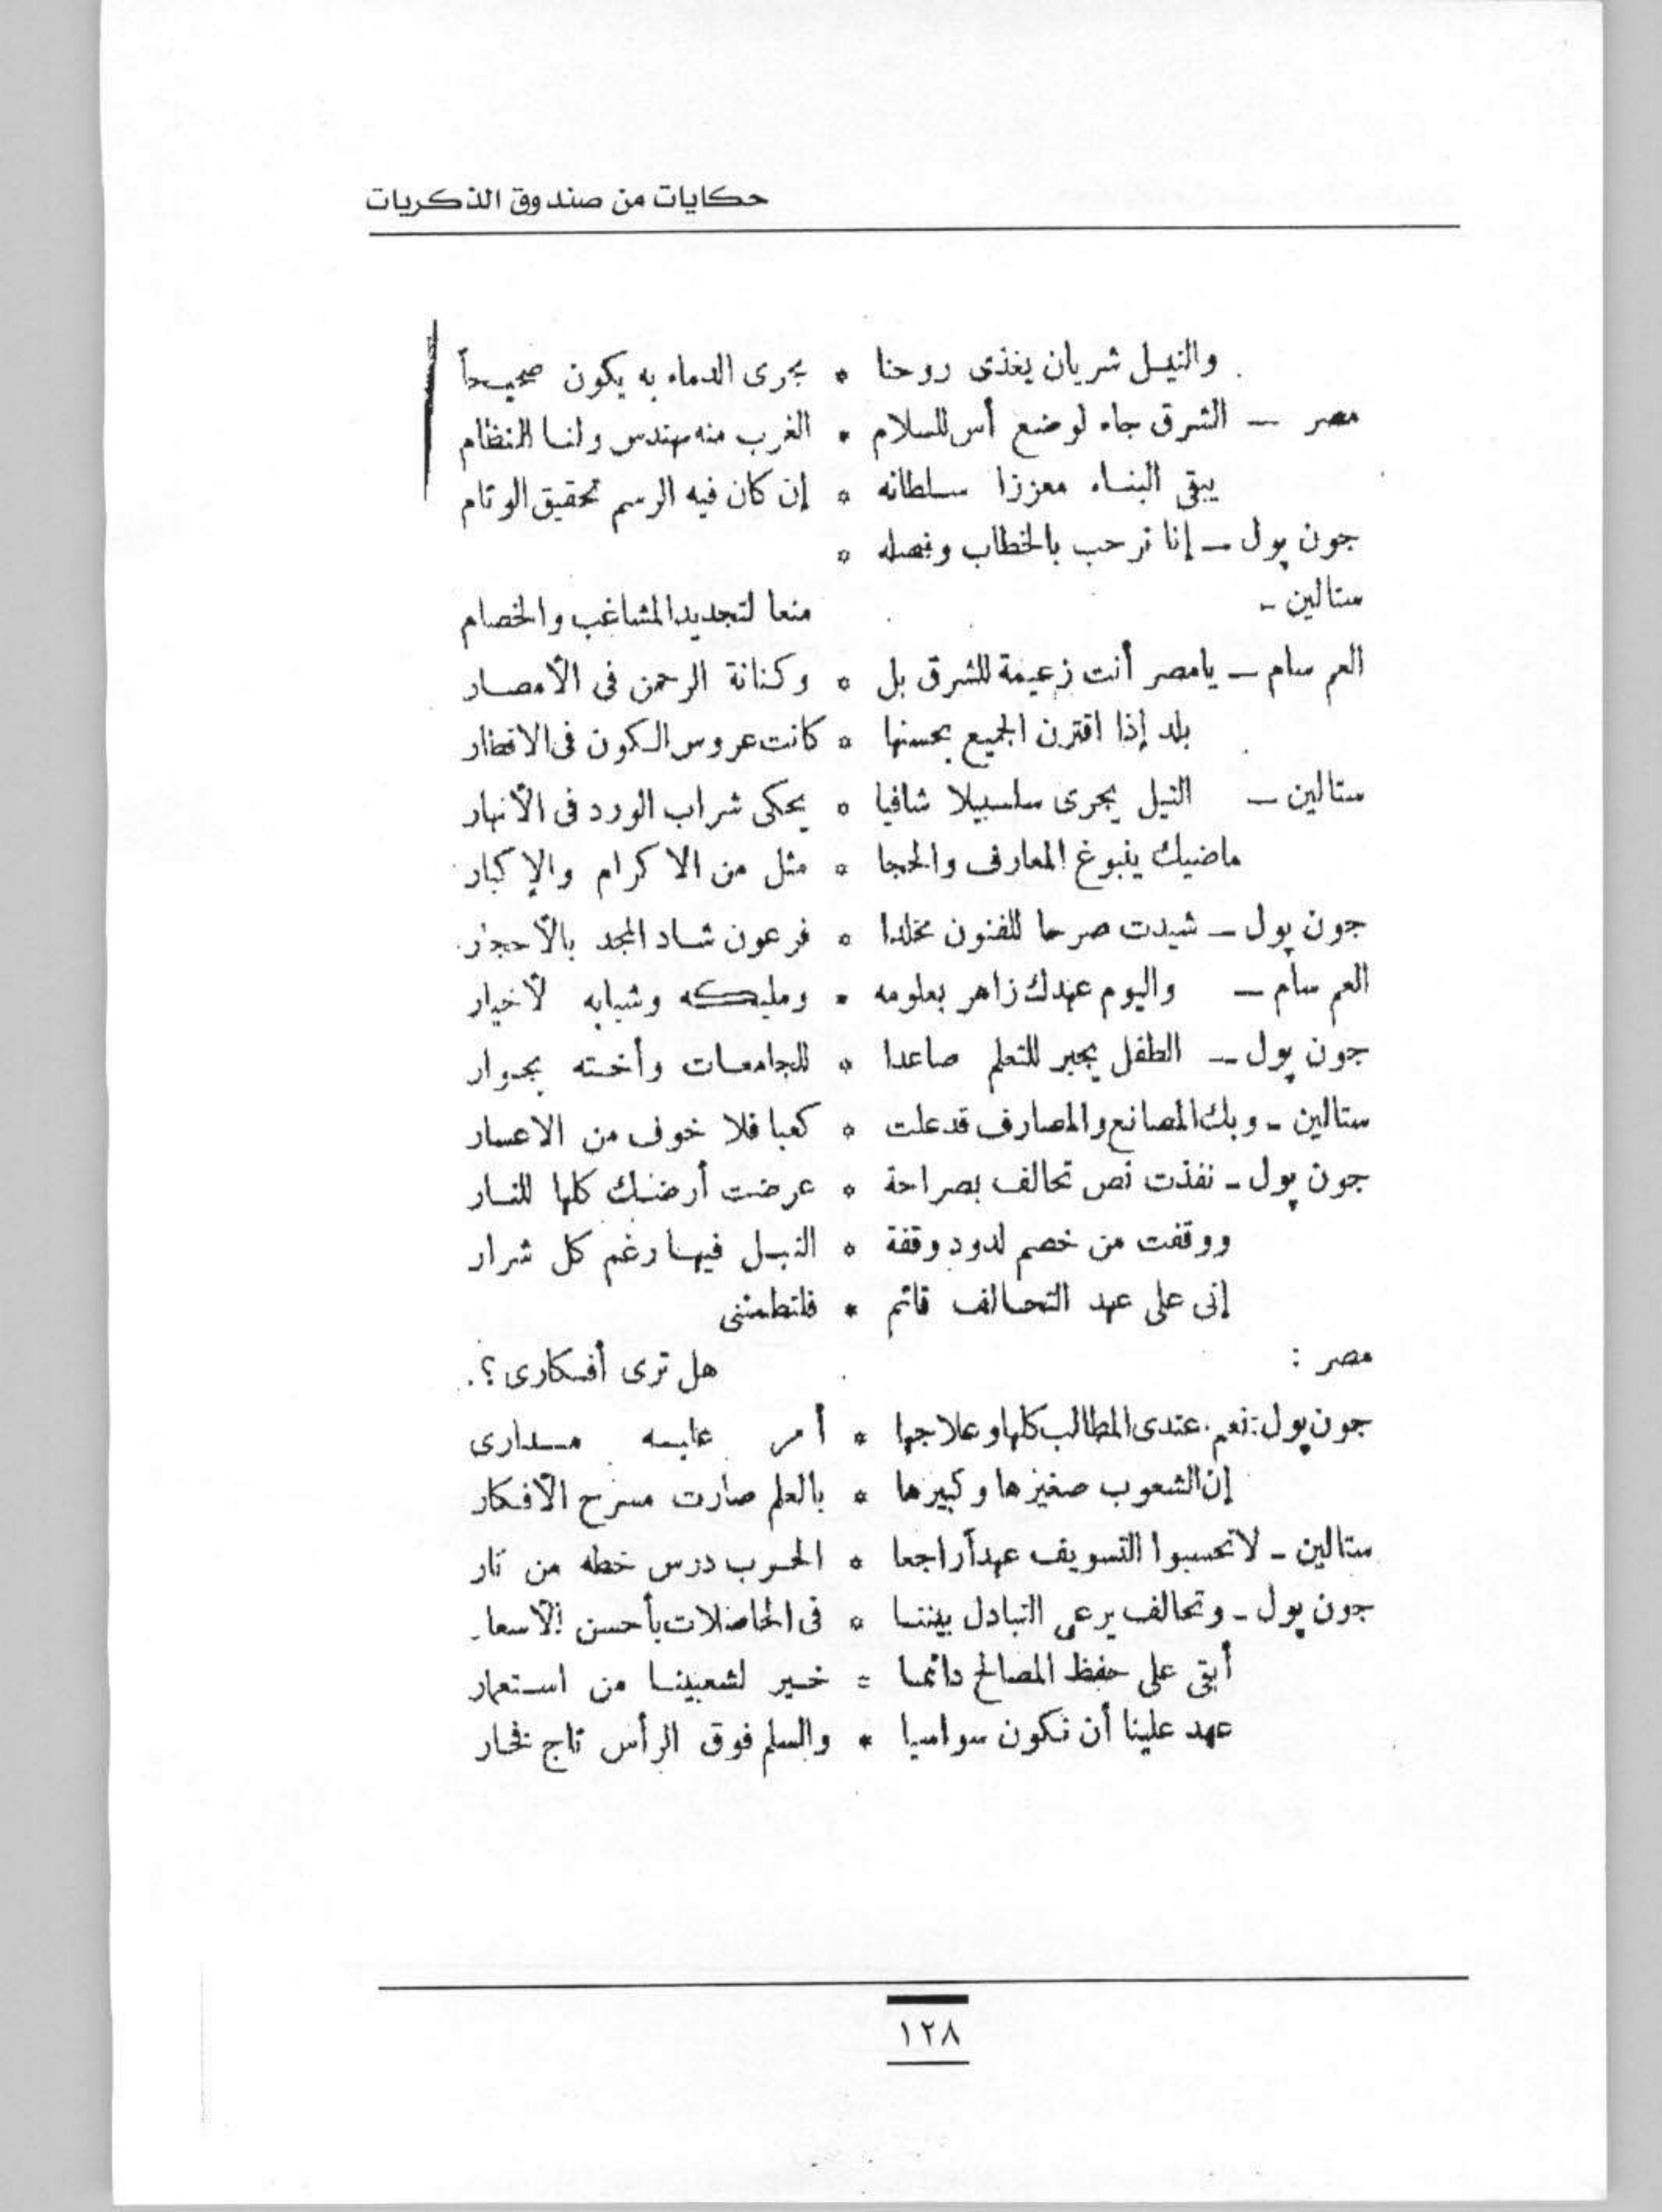 حكايات من صندوق الذكريات
والنيل شريان يغذى روحنا * يجرى الدماء به يكون صحيحاً
مصر — الشرق جاء لوضع أس للسلام * الغرب منه مهندس ولنا النظام
يبقى البناء معززا سلطانه * إن كان فيه الرسم تحقيق الوئام
جون بول — إنا نرحب بالخطاب وفصله *
ستالين - منعا لتجديد المشاغب والخصام
العم سام — يامصر أنت زعيمة للشرق بل * وكنانة الرحمن فى الأمصار
بلد إذا اقترن الجميع بحسنها * كانت عروس الكون فى الاقطار
ستالين — النيل يجرى سلسبيلا شافيا * يحكى شراب الورد فى الأنهار
ماضيك ينبوغ المعارف والحجا * مثل من الاكرام والإكبار
جون بول — شيدت صرحا للفنون مخلدا * فرعون شاد المجد بالأحجار
العم سام — واليوم عهدك زاهر بعلومه * ومليكه وشبابه لأخيار
جون بول — الطفل يجبر للتعلم صاعدا * للجامعات وأخته بجوار
ستالين - وبك المصانع والمصارف قد علت * كعبا فلا خوف من الاعسار
جون بول - نفذت نص تحالف بصراحة * عرضت أرضك كلها للنار
ووقفت من خصم لدود وقفة * النبل فيها رغم كل شرار
إنى على عهد التحالف قائم * فلتطمئنى
مصر : هل ترى أفكارى ؟.
جون بول : نعم . عندى المطالب كلها وعلاجها * أمر عليه مدارى
إن الشعوب صغيرها وكبيرها * بالعلم صارت مسرح الأفكار
ستالين - لا تحسبوا التسويف عهداً راجعا * الحرب درس خطه من نار
جون بول - وتحالف يرعى التبادل بيننا * فى الحاصلات بأحسن الأسعار
أبقى على حفظ المصالح دائما = خير لشعبينا من استعمار
عهد علينا أن نكون سواسيا * والسلم فوق الرأس تاج فخار
١٢٨